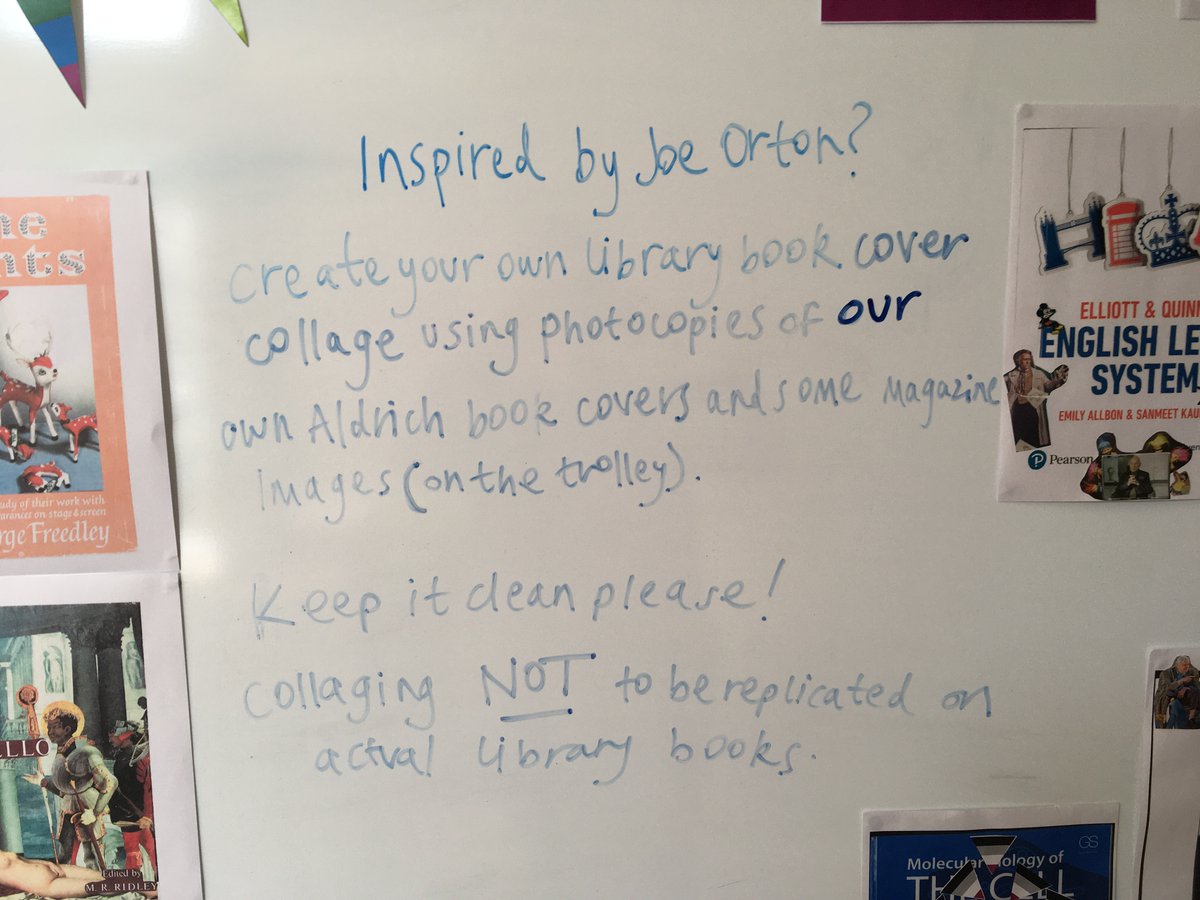 Inspired by Joe Orton?
Create your own library book cover
collage using photocopies of our
own Aldrich book covers and some magazine
images (on the trolley).
Keep it clean please!
Collaging NOT to be replicated on
actual library books.
udy of their work with
arances on stage & screen
rge Freedley
LLO
Edited by
M. R. RIDLEY
ELLIOTT & QUINN
ENGLISH LE
SYSTEM
EMILY ALLBON & SANMEET KAU
Pearson
GS
Molecular Biology of
THE CELL